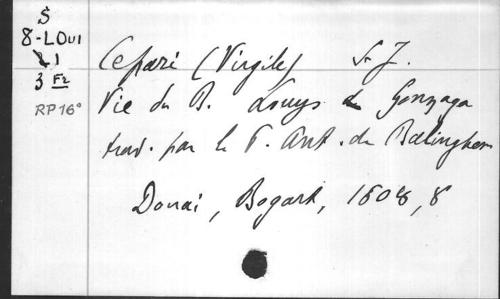 S
8-LOUI
21
3 Fz
RP 16°
Cepari (Virgile) S. J.
Vie du B. Louys de Gonzaga
trad. par le P. Ant. de Balinghem
Douai, Bogart, 1608, 8